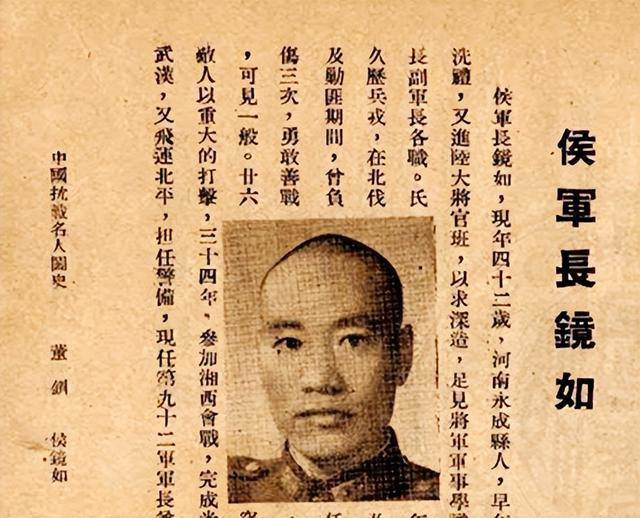 侯軍長鏡如
侯軍長鏡如，現年四十二歲，河南永成縣人，早
洗禮，又進陸大將官班，以求深造，足見將軍軍事學
長副軍長各職。氏
久歷兵戎，在北伐
及勦匪期間，曾負
傷三次，勇敢善戰
，可見一般。廿六
敵人以重大的打擊，三十四年，參加湘西會戰，完成
武漢，又飛連北平，担任警備，現任第九十二軍軍長
中國抗戰名人圖史　董釗　侯鏡如